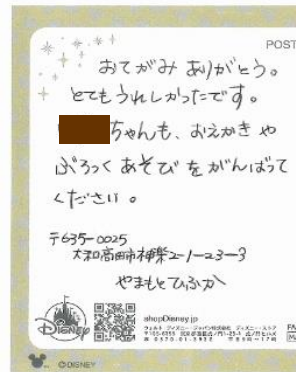 POST
おてがみ ありがとう。
とてもうれしかったです。
ちゃんも、おえかき や
ぶろっく あそび を がんばって
ください。
〒635-0025
大和高田市神楽2-1-23-3
やまもと
Disney
shopDisney.jp
©DISNEY